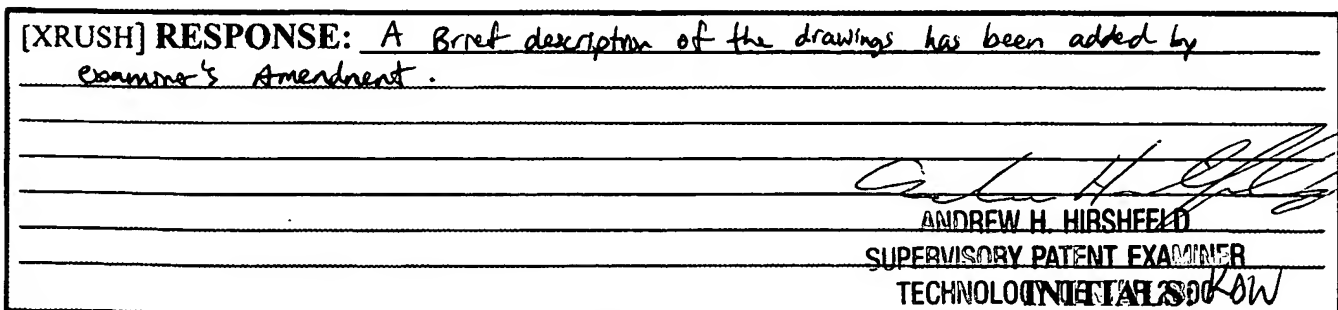 [XRUSH] RESPONSE: A Brief description of the drawings has been added by
examiner's Amendment.
ANDREW H. HIRSHFELD
SUPERVISORY PATENT EXAMINER
TECHNOLOGY
INITIALS: KOW